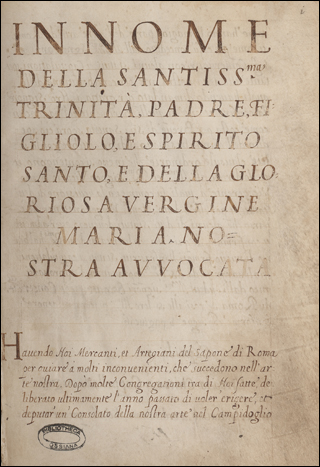 IN NOME
DELLA SANTISS.ma
TRINITÀ, PADRE, FI-
GLIOLO, E SPIRITO
SANTO, E DELLA GLO-
RIOSA VERGINE
MARIA NO=
STRA AVVOCATA
Havendo Noi Mercanti, et Artegiani del Sapone di Roma
per euitare à molti inconuenienti, che succedono nell'ar-
te nostra. Dopò molte Congregationi tra di Noi fatte de-
liberato ultimamente l'anno passato di uoler erigere, et
deputar un Consolato della nostra arte nel Campidoglio
BIBLIOTHECA